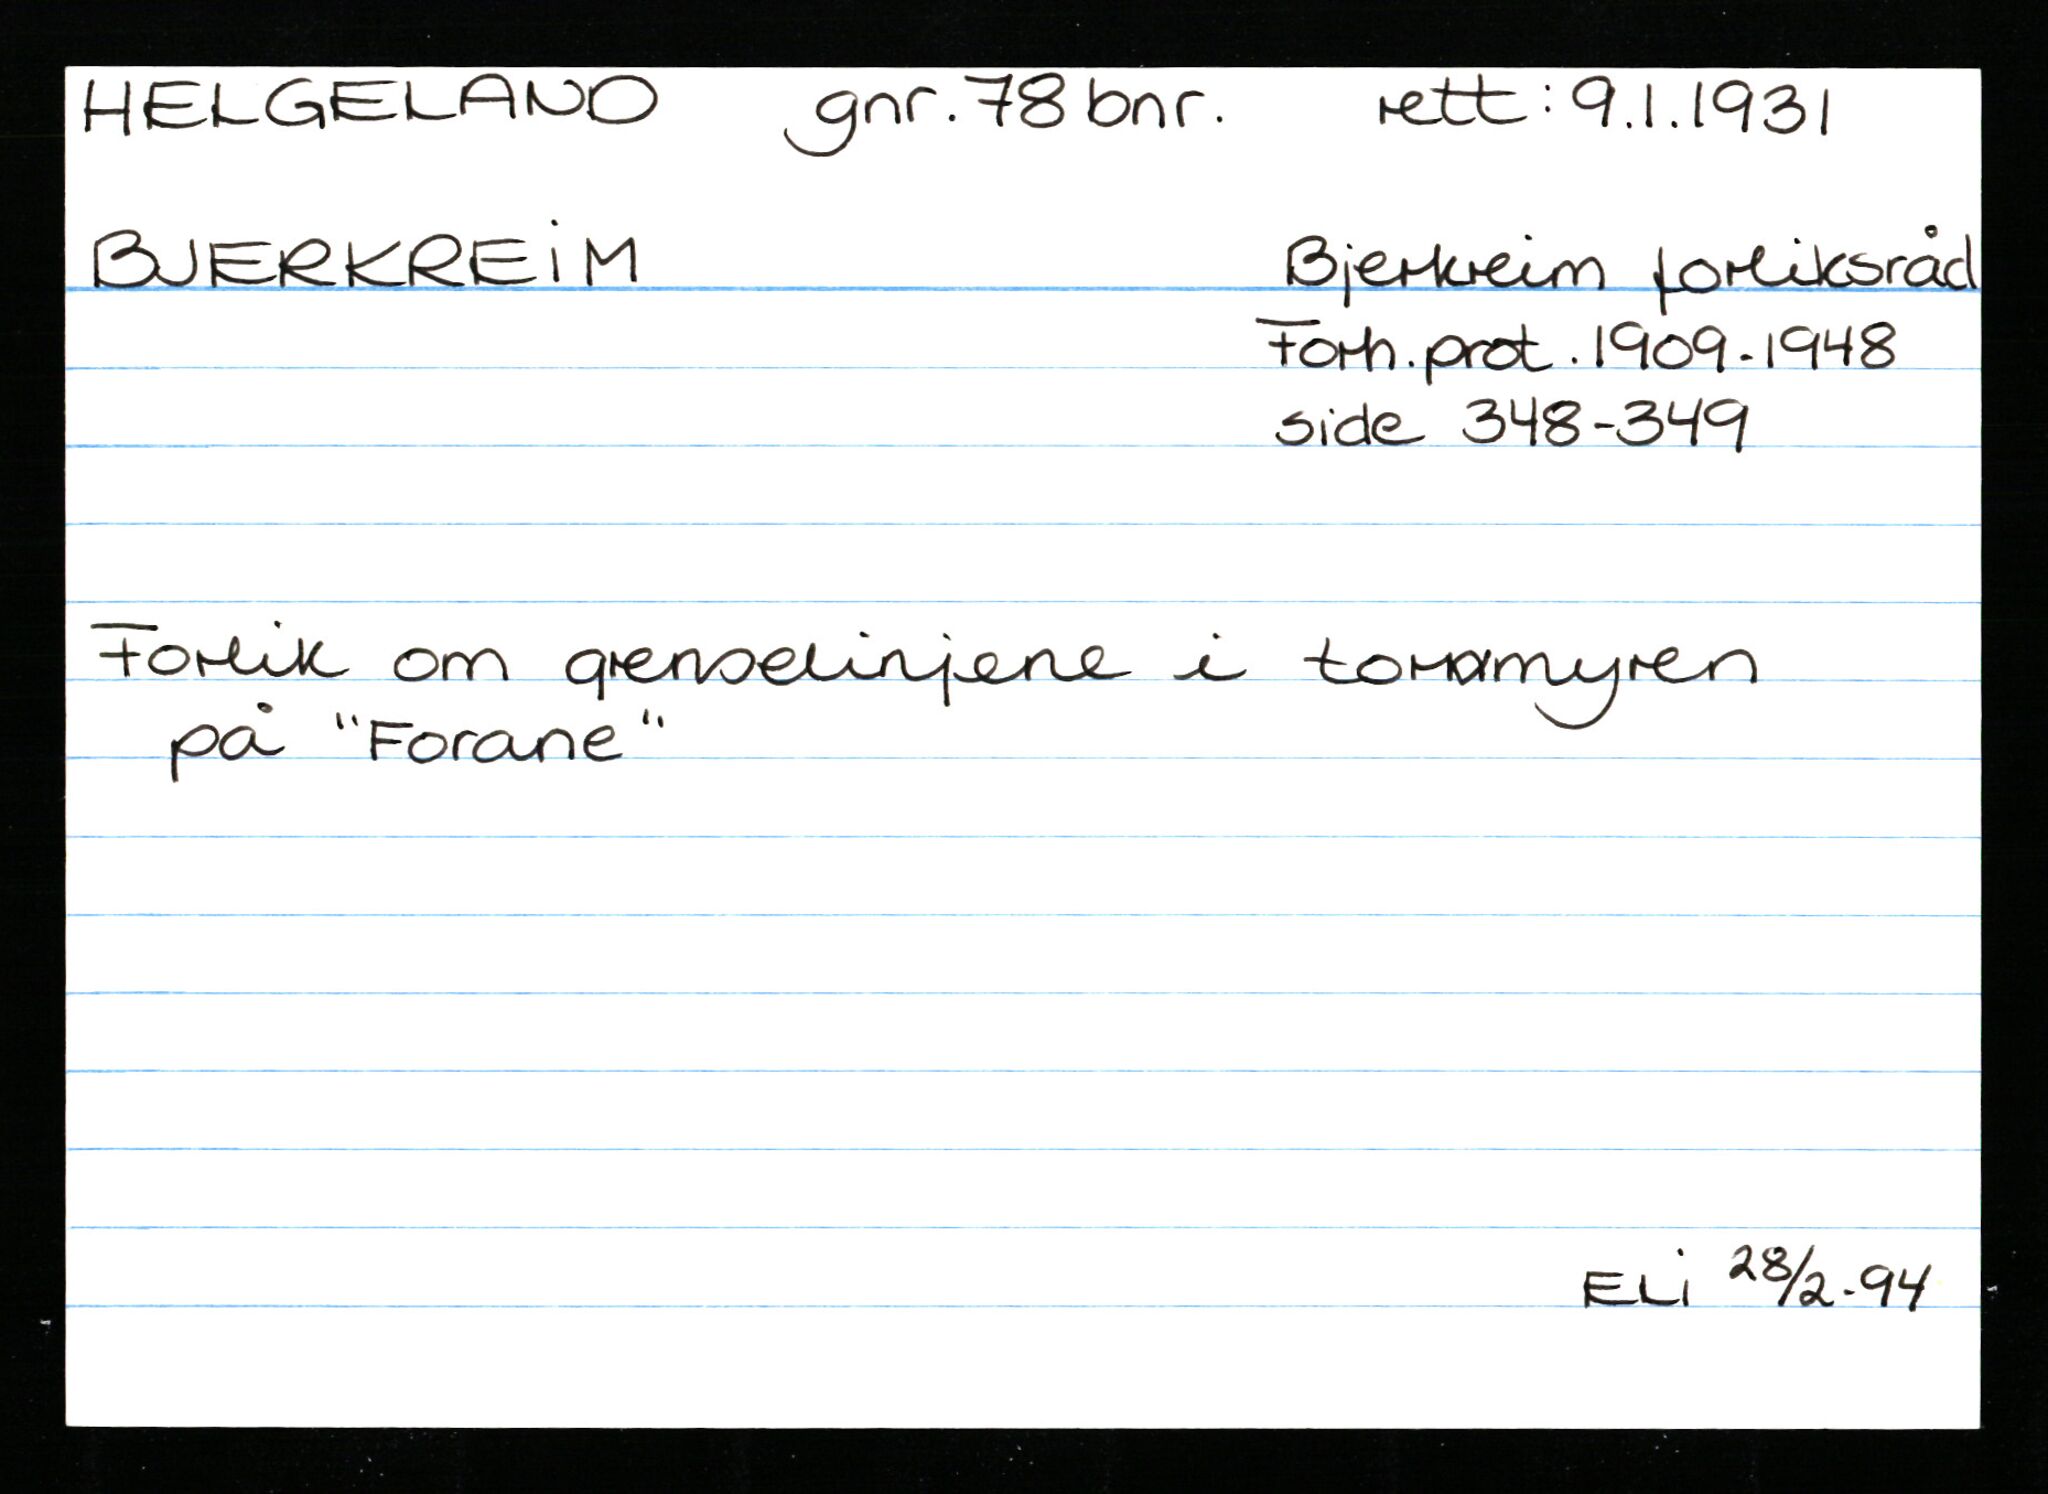 HELGELAND gnr. 78 bnr. rett: 9.1.1931
BJERKREIM Bjerkreim forliksråd
Forh. prot. 1909-1948
side 348-349
Forlik om grenselinjene i torvmyren
på "Forane"
ELI 28/2-94